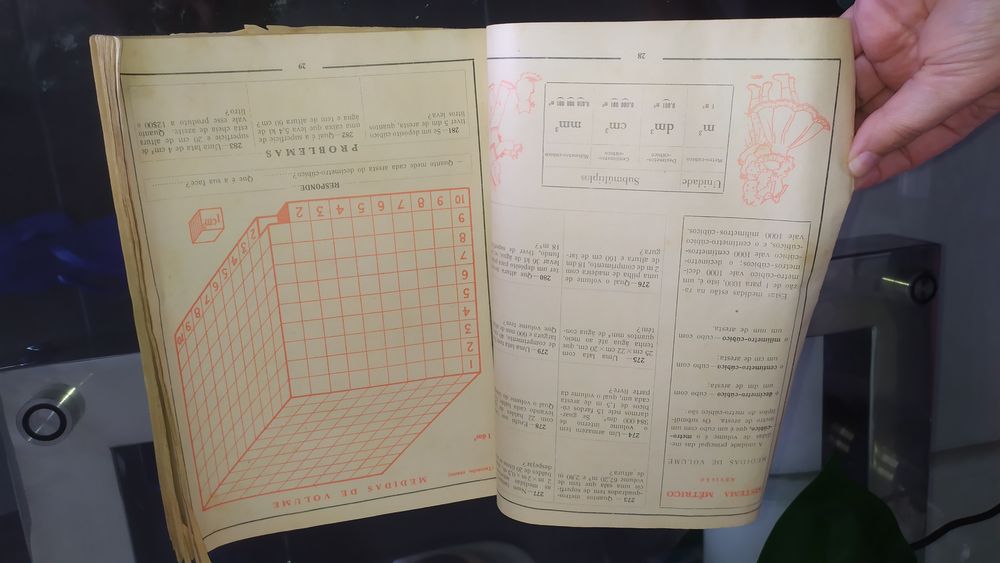 SISTEMA MÉTRICO
REVISÃO
MEDIDAS DE VOLUME
A unidade principal das me-
didas de volume é o metro-
-cúbico, que é um cubo com um
metro de aresta. Os submúl-
tiplos do metro-cúbico são:
o decímetro-cúbico – cubo com
um dm de aresta;
o centímetro-cúbico – cubo com
um cm de aresta;
o milímetro-cúbico – cubo com
um mm de aresta.
Estas medidas estão na ra-
zão de 1 para 1000, isto é, um
metro-cúbico vale 1000 decí-
metros-cúbicos; o decímetro-
-cúbico vale 1000 centímetros-
-cúbicos, e o centímetro-cúbico
vale 1000 milímetros-cúbicos.
273 – Quantos metros
quadrados tem de superfí-
cie uma sala que tem de
volume 67,20 m³ e 2,80 m
de altura?
274 – Um armazém tem
o volume interno de
384 000 dm³. Se guar-
darmos nele 15 fardos cú-
bicos de 1,5 m de aresta
cada um, qual o volume da
parte livre?
275 – Uma lata com
25 cm × 22 cm × 20 cm, que
tenha água até ao meio,
quantos mm³ de água con-
têm?
276 – Qual o volume de
uma pilha de madeira com
2 m de comprimento, 18 dm
de altura e 160 cm de lar-
gura?
277 – Num
as medidas
2 m × 2 m × 0,5 m
baldes de 20 litros
despejar?
278 – Enchi
com 22 baldes
levando cada balde
Qual o volume
279 – Uma lata
de comprimento, 40
largura e 600 mm de
Que volume tem?
280 – Que altura
ter um depósito para
levar 36 kl de água, se
fundo, tiver de superfície
18 m²?
Unidade
Submúltiplos
Metro-cúbico
Decímetro-
-cúbico
Centímetro-
-cúbico
Milímetro-cúbico
m³
dm³
cm³
mm³
1 m³
0,001 m³
0,000 001 m³
0,000 000 001 m³
28
MEDIDAS DE VOLUME
(Tamanho exacto)
1 dm³
1
2
3
4
5
6
7
8
9
10
9
8
7
6
5
4
3
2
2
3
4
5
6
7
8
9
10
1cm³
RESPONDE
Quanto mede cada aresta do decímetro-cúbico?
Que é a sua face?
PROBLEMAS
281 – Se um depósito cúbico
tiver 5 dm de aresta, quantos
litros leva?
282 – Qual é a superfície de
uma caixa que leva 5,4 kl de
água e tem de altura 60 cm?
283 – Uma lata de 4 dm² de
superfície e 20 cm de altura
está cheia de azeite. Quanto
vale esse produto a 12$00 o
litro?
29